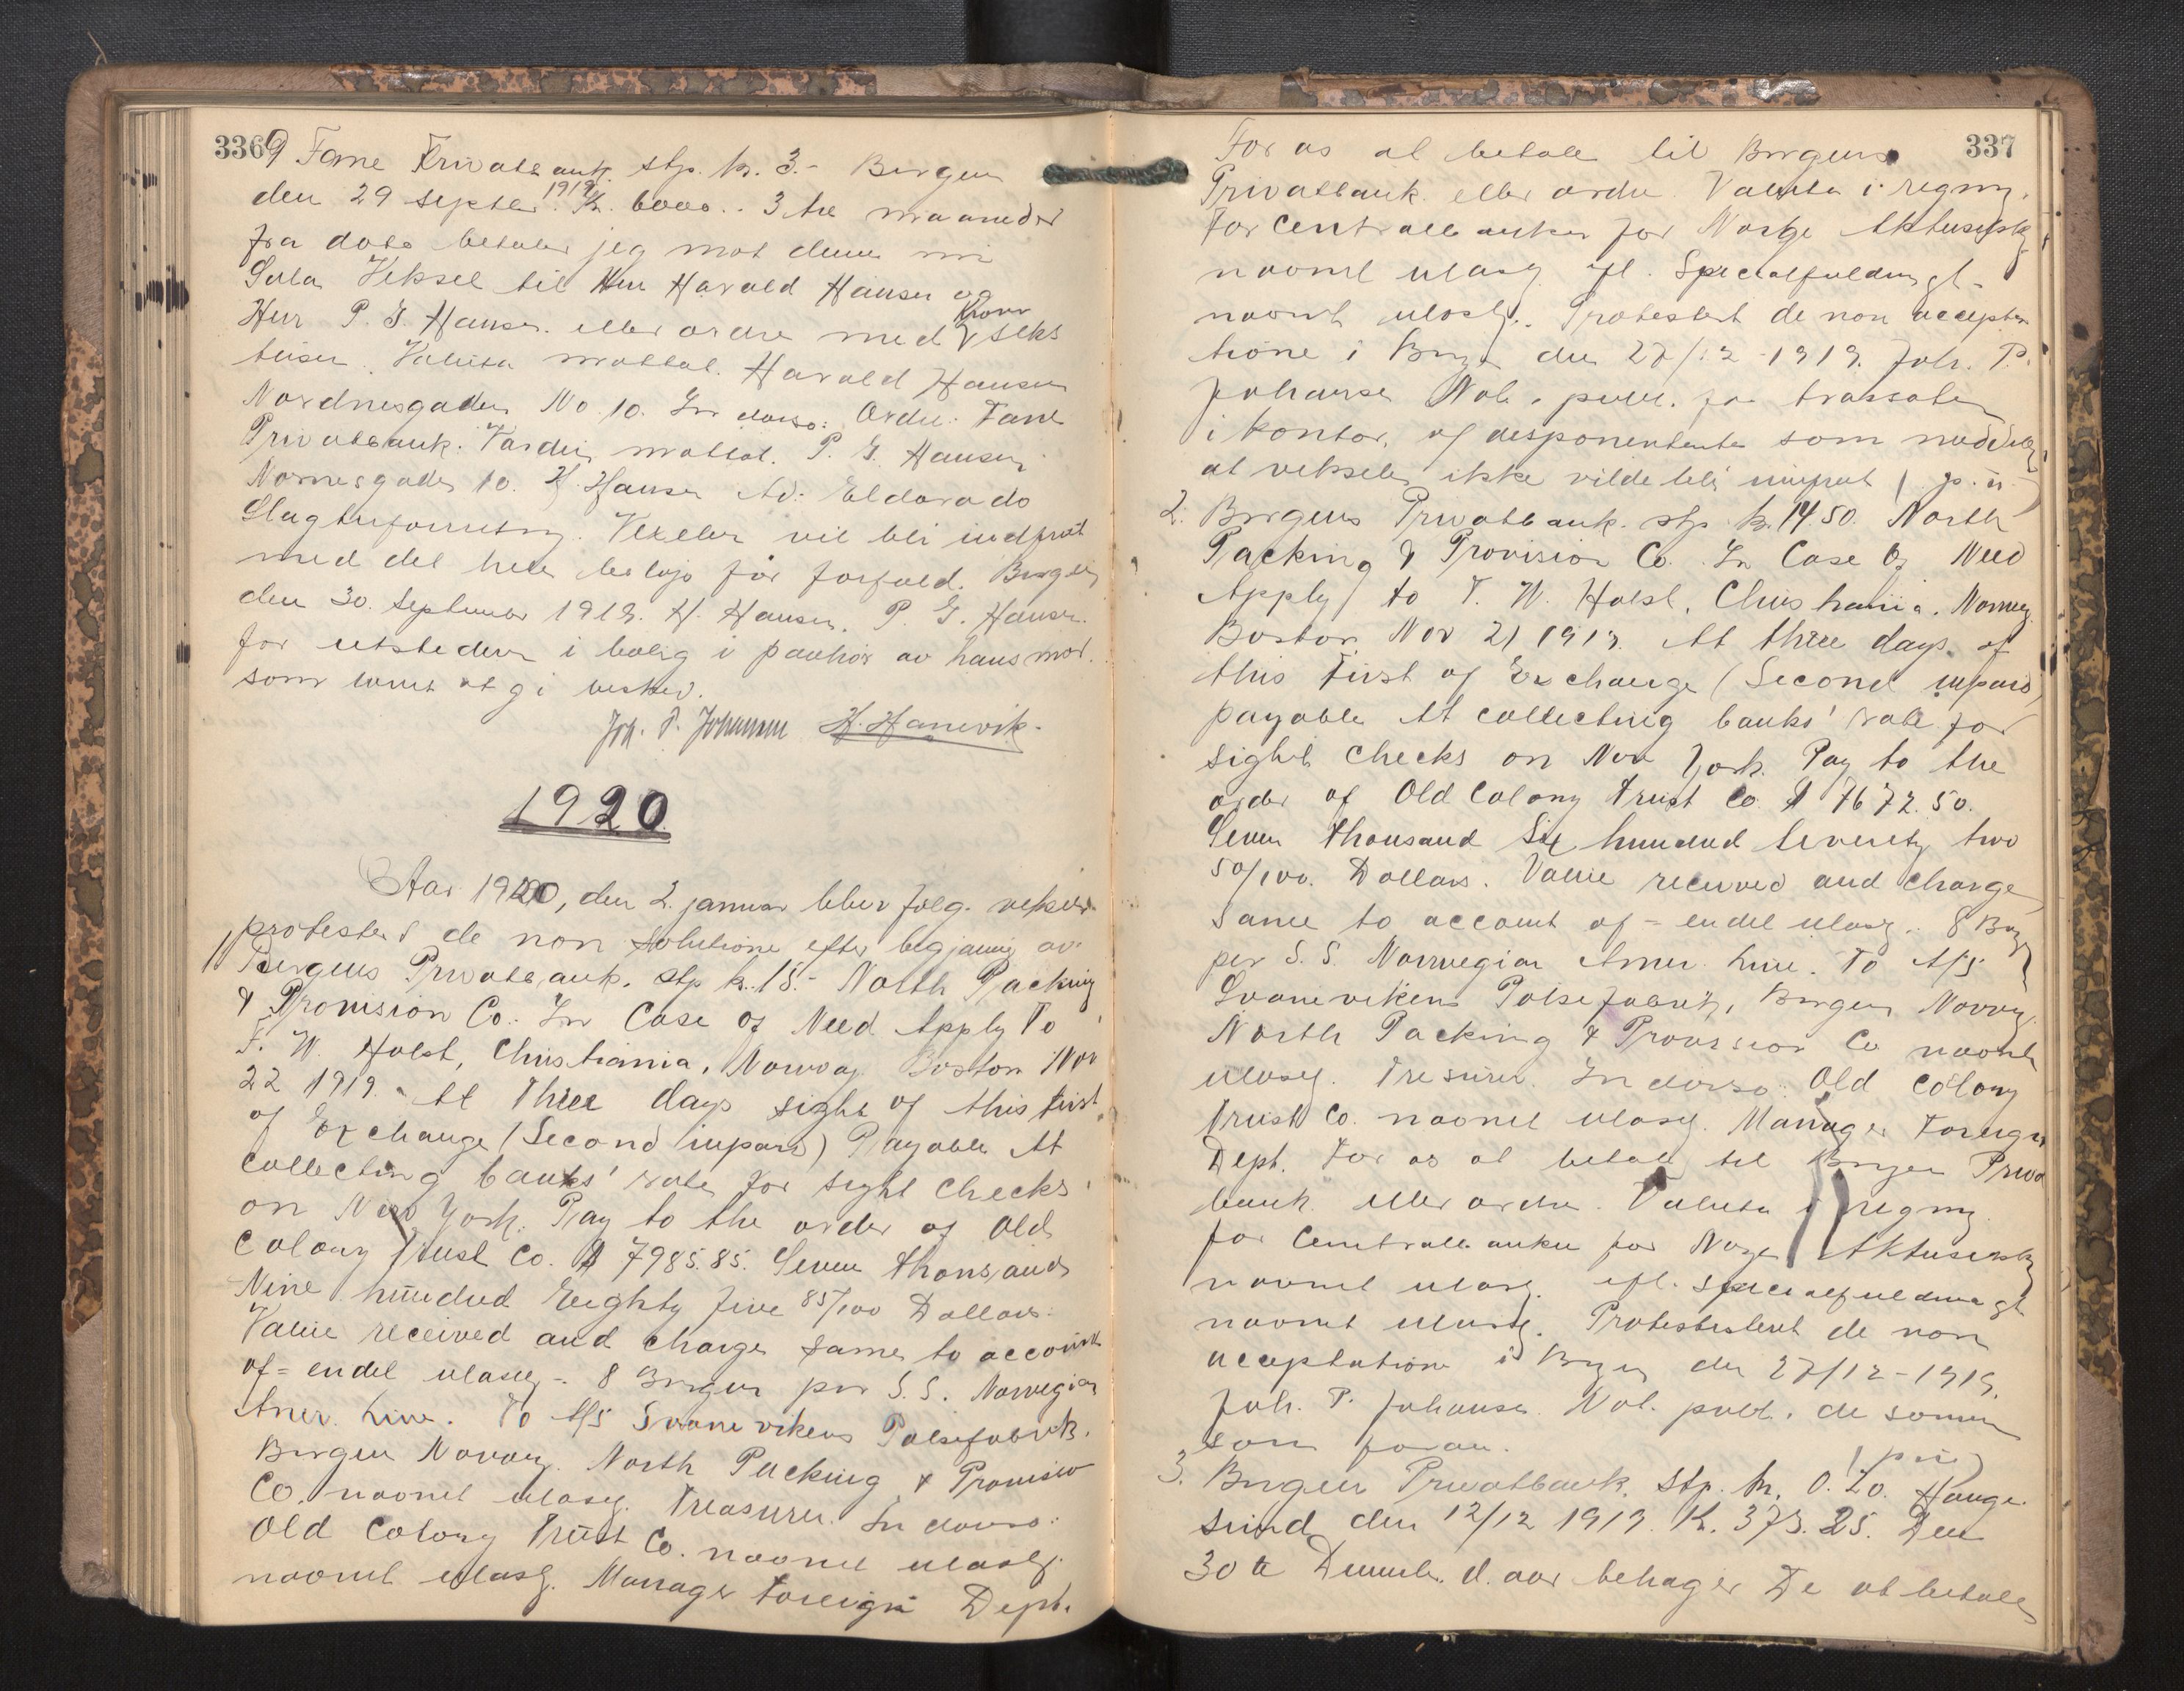 336
9 Fane Privatbank. stp. kr. 3.- Bergen
den 29 septbr. 1919 Kr. 6000.. 3 tre maaneder
fra dato betaler jeg mot denne min
Sola Veksel til Herr Harald Hansen og
Herr P. G. Hansen. eller ordre med Kroner seks
tusen. Valuta mottat. Harald Hansen
Nordnesgaden No. 10. In dorso: Ordre: Fane
Privatbank. Værdien mottat. P. G. Hansen
Nornesgaden 10. H. Hansen Ad: Eldorado
Slagterforretng. Vexelen vil bli indfriet
med det hele beløp før forfald. Bergen,
den 30. September 1919. H. Hansen. P. G. Hansen.
for utstederen i bolig i paahør av hans mor.
som lovet at gi besked.
Joh. P. Johannsen H. Hanevik.
1920
Aar 1920, den 2. januar blev følg. veksler
protestert de non solutione efter begjæring av
1) Bergens Privatbank. stp kr. 15.- North Packing
& Provision Co. In Case of Need Apply To
F. W. Holst, Christiania, Norway Boston Nov
22 1919. At Three days sight of this first
of Exchange (Second inpaid) Payable At
collecting banks' rate for sight checks
on New York. Pay to the order of Old
Colony Trust Co. $ 7985.85. Seven thousand
Nine hundred Eeighty five 85/100 Dollars.
Value received and charge same to account
of = endel ulæselg - 8 Bergen per S.S. Norwegian
Amer. Line. To A/S Svanevikens Pølsefabrik.
Bergen Norway. North Packing & Provision
Co. navnet ulæselg. Treasurer. In dorso:
Old Colony Trust Co. navnet ulæselg.
navnet ulæselg. Manager Foreign Dept.
337
For os at betale til Bergens
Privatbank eller ordre. Valuta i regng.
For Centralbanken for Norge Aktieselsk
navnet ulæselg. ifl. Specialfuldmagt -
navnet ulæselg. Protestert de non accepta
tione i Bergen den 27/12 - 1919. Joh. P.
Johansen Not. publ. for trassaten
i kontor, af disponenten som meddelte
at vekselen ikke vilde bli innfriet
2. Bergens Privatbank. stp. kr. 14.50. North
Packing & Provision Co. In Case Of Need
Apply to F. W. Holst, Christiania. Norway
Boston Nov 21 1919. At three days of
this First of Exchange (Second inpaid)
payable At collecting banks' rate for
sight checks on New York. Pay to the
order of Old Colony Trust Co. $ 7672.50.
Seven thousand Six hundred Seventy two
50/100. Dollars. Value received and charge
same to account of = endel ulæselg.. 8 Berg
per S. S. Norwegian Amer. Line. To A/S
Svanevikens Pølsefabrik, Bergen Norway.
North Packing & Provision Co navnet
ulæselg. Tresurer. In dorso: Old Colony
Trust Co. navnet ulæselg. Manager Foreign
Dept. For os at betale til Bergen Privat
bank eller ordre. Valuta i regng
for Centralbanken for Norge Aktieselsk
navnet ulæselg. ifl. Specialfuldmagt
navnet ulæselg. Protestestert de non
acceptatione i Bergen den 27/12 - 1919.
Joh. P. Johansen. Not. publ. de samme
som foran.
3. Bergen Privatbank. stp. kr. 0.20. Hauge-
sund den 12/12 1919. Kr. 373.25. Den
30 te Decembr. d. aar behager De at betale